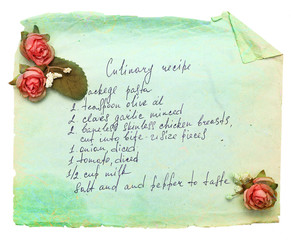 Culinary recipe
1 package pasta
1 teaspoon olive oil
2 cloves garlic minced
2 boneless skinless chicken breasts,
cut into bite-size pices
1 onion, diced
1 tomato, diced
1/2 cup milk
Salt and and peffer to taste